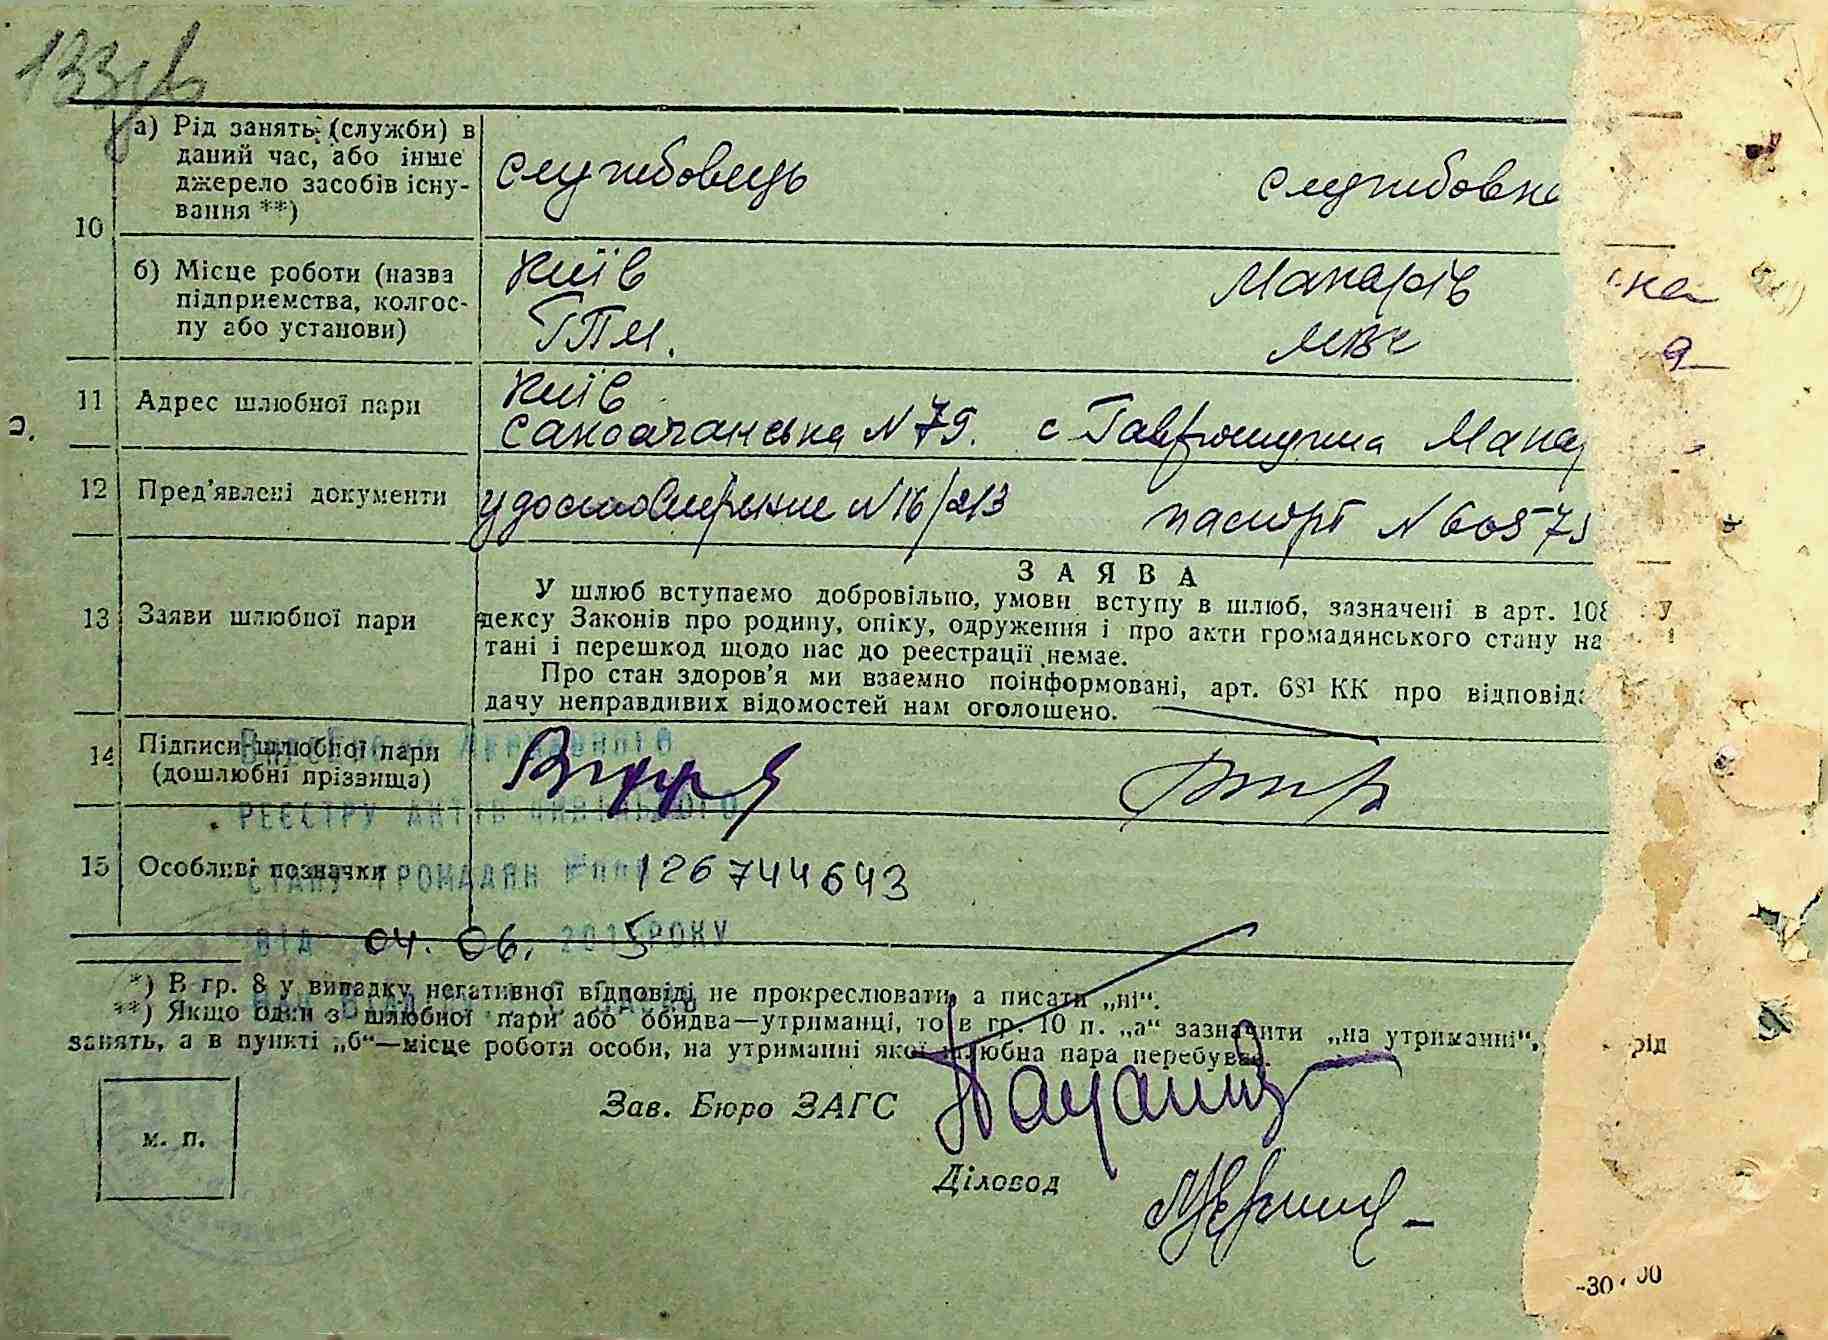 133
а) Рід занять (служби) в
даний час, або інше
джерело засобів існу-
вання **)
10
службовець
службовка
б) Місце роботи (назва
підприємства, колгос-
пу або установи)
Київ
ГПИ.
Макарів
МВС
11
Адрес шлюбної пари
Київ
№ 79.
с Гавронщина Мака
12
Пред'явлені документи
удостоверение №16/213
паспорт № 60575
13
Заяви шлюбної пари
ЗАЯВА
У шлюб вступаємо добровільно, умови вступу в шлюб, зазначені в арт. 108
дексу Законів про родину, опіку, одруження і про акти громадянського стану
тані і перешкод щодо нас до реєстрації немає.
Про стан здоров'я ми взаємно поінформовані, арт. 68¹ КК про
дачу неправдивих відомостей нам оголошено.
14
Підписи шлюбної пари
(дошлюбні прізвища)
Державного
РЕЄСТРУ АКТІВ ЦИВІЛЬНОГО
15
Особливі позначки
СТАНУ ГРОМАДЯН
126744643
ВІД 04. 06. 2015 РОКУ
*) В гр. 8 у випадку негативної відповіді не прокреслювати, а писати „ні“.
**) Якщо один з шлюбної пари або обидва—утриманці, то в гр. 10 п. „а“ зазначити „на утриманні“,
рід
занять, а в пункті „б“—місце роботи особи, на утриманні якої шлюбна пара перебуває.
Зав. Бюро ЗАГС
м. п.
Діловод